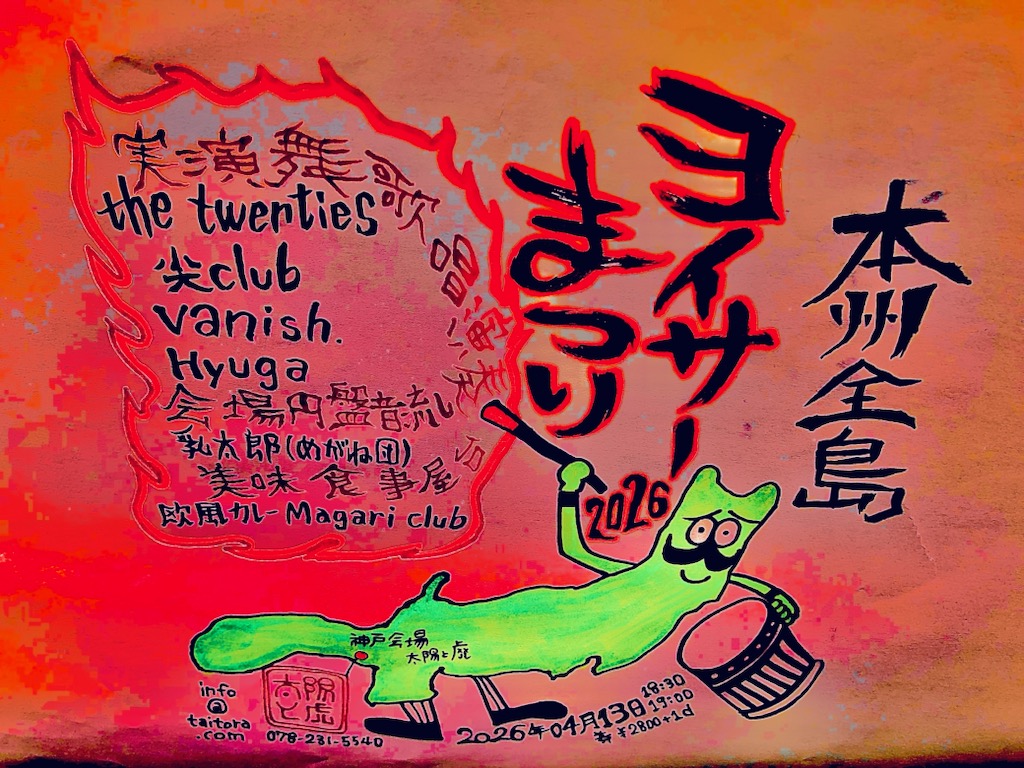 本州全島
ヨイサー
まつり
2026
実演舞歌唱演奏
the twenties
尖club
vanish.
Hyuga
会場円盤音流し
乳太郎(めがね団)
美味食事屋台
欧風カレーMagari club
神戸会場
太陽と虎
info
@
taitora
.com
太陽と虎
078-231-5540
2026年04月13日
18:30
19:00
¥2800+1d